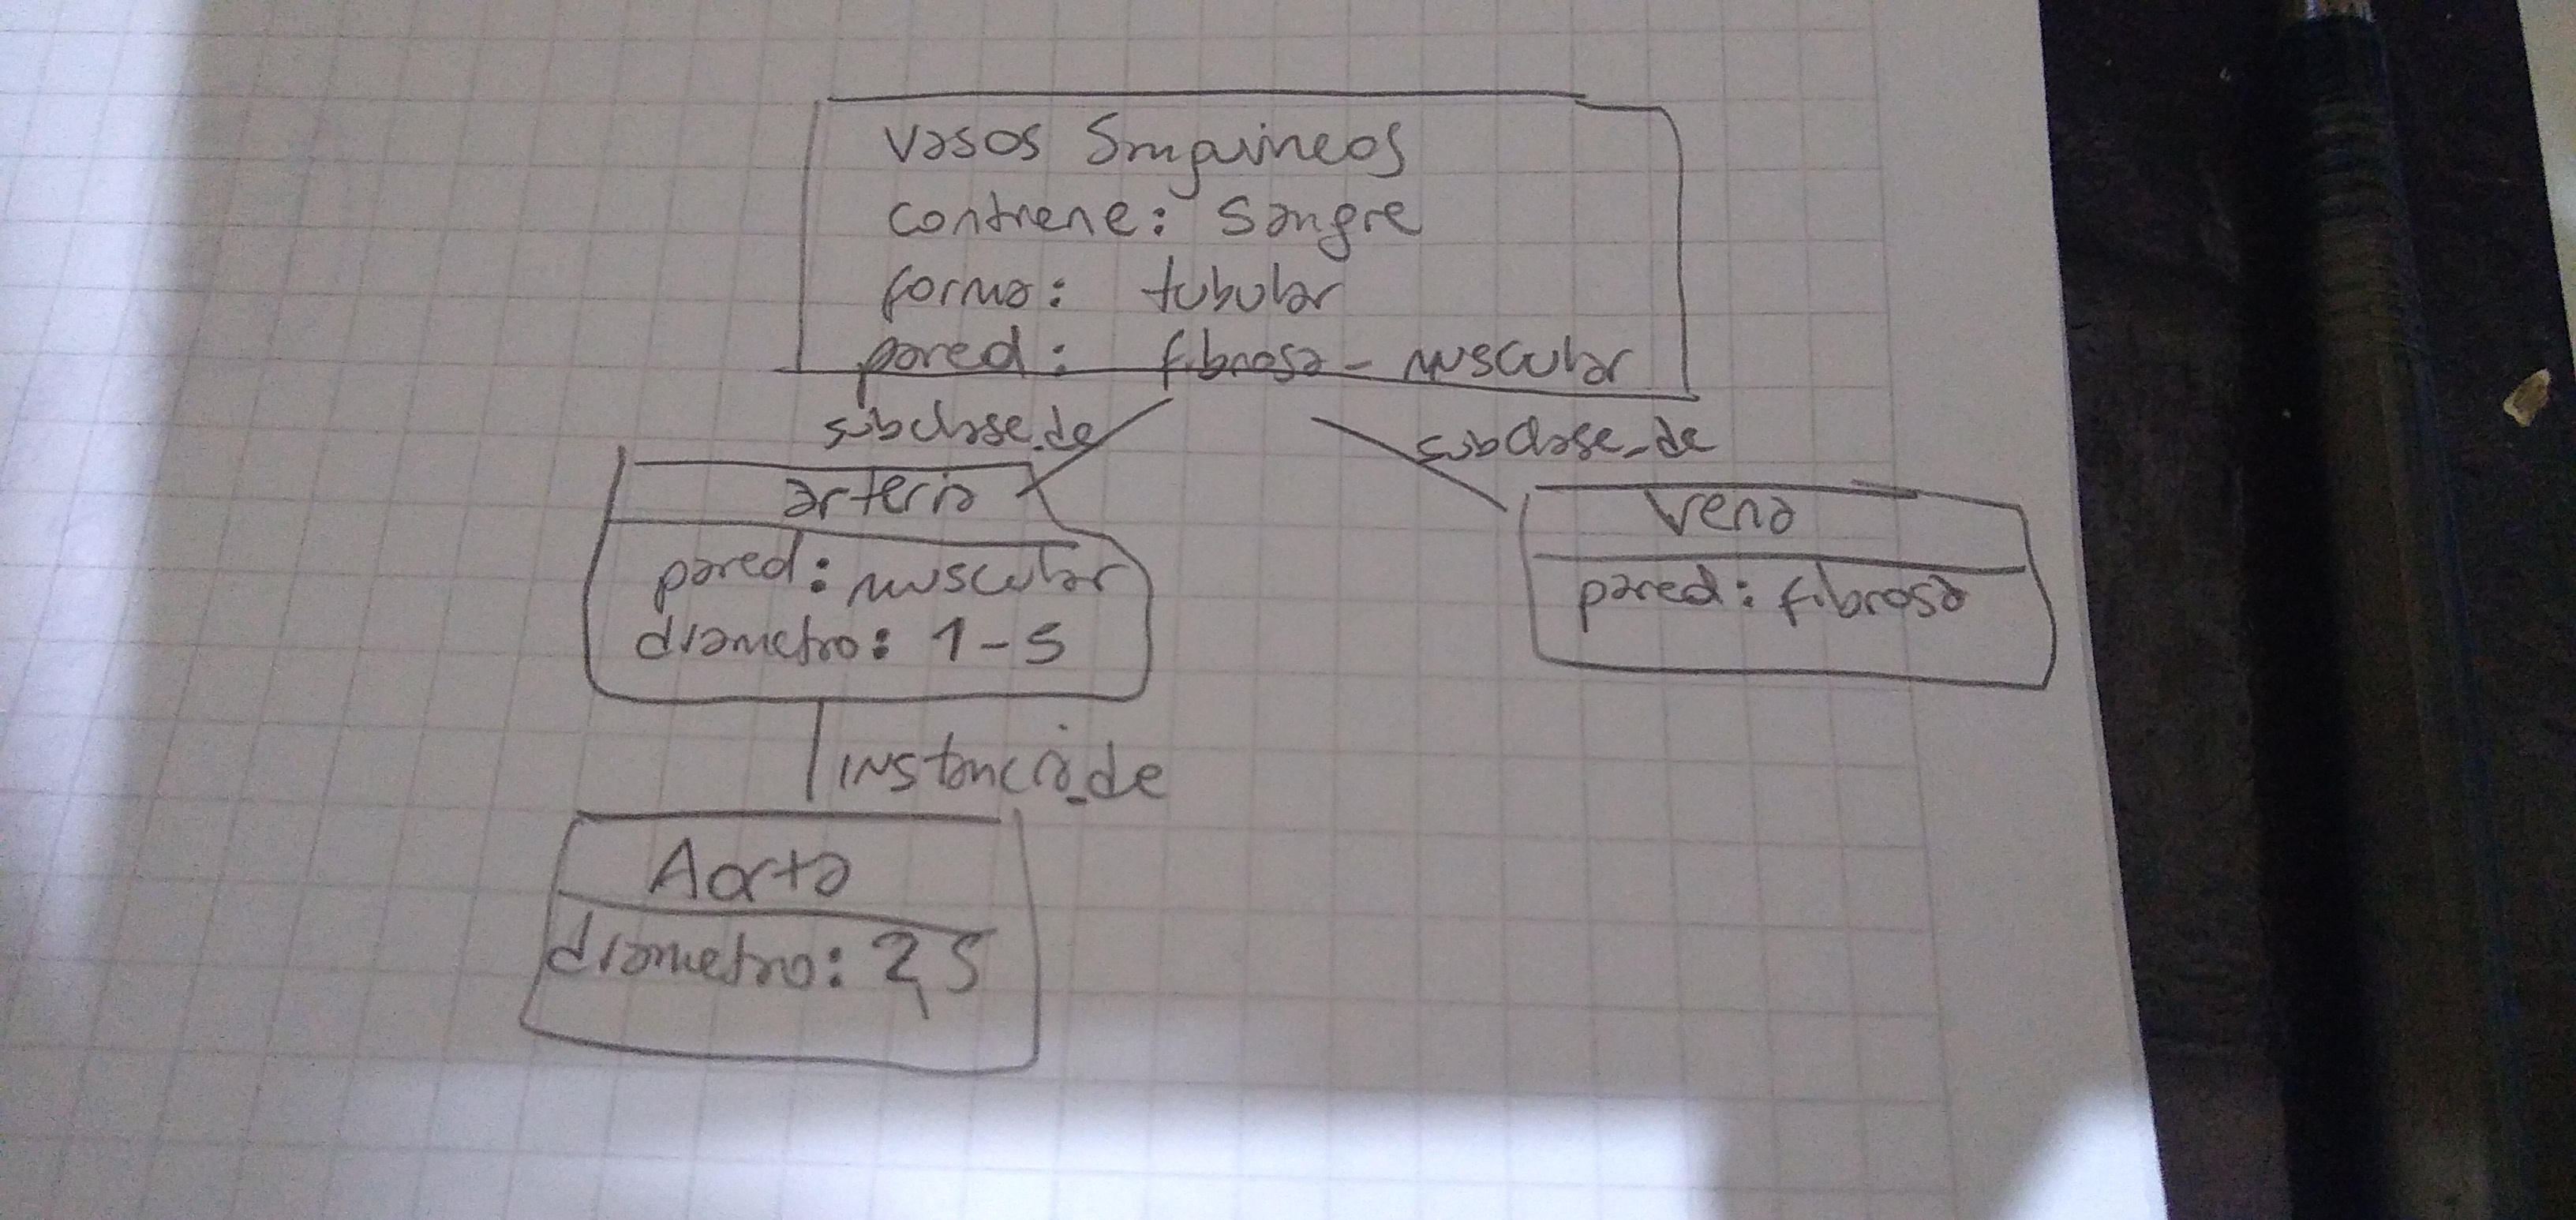 vasos Sanguineos
contiene: Sangre
forma: tubular
pared: fibrosa - muscular
subclase_de
subclase_de
arteria
pared: muscular
diametro: 1-5
vena
pared: fibrosa
instancia_de
Aorta
diametro: 2,5